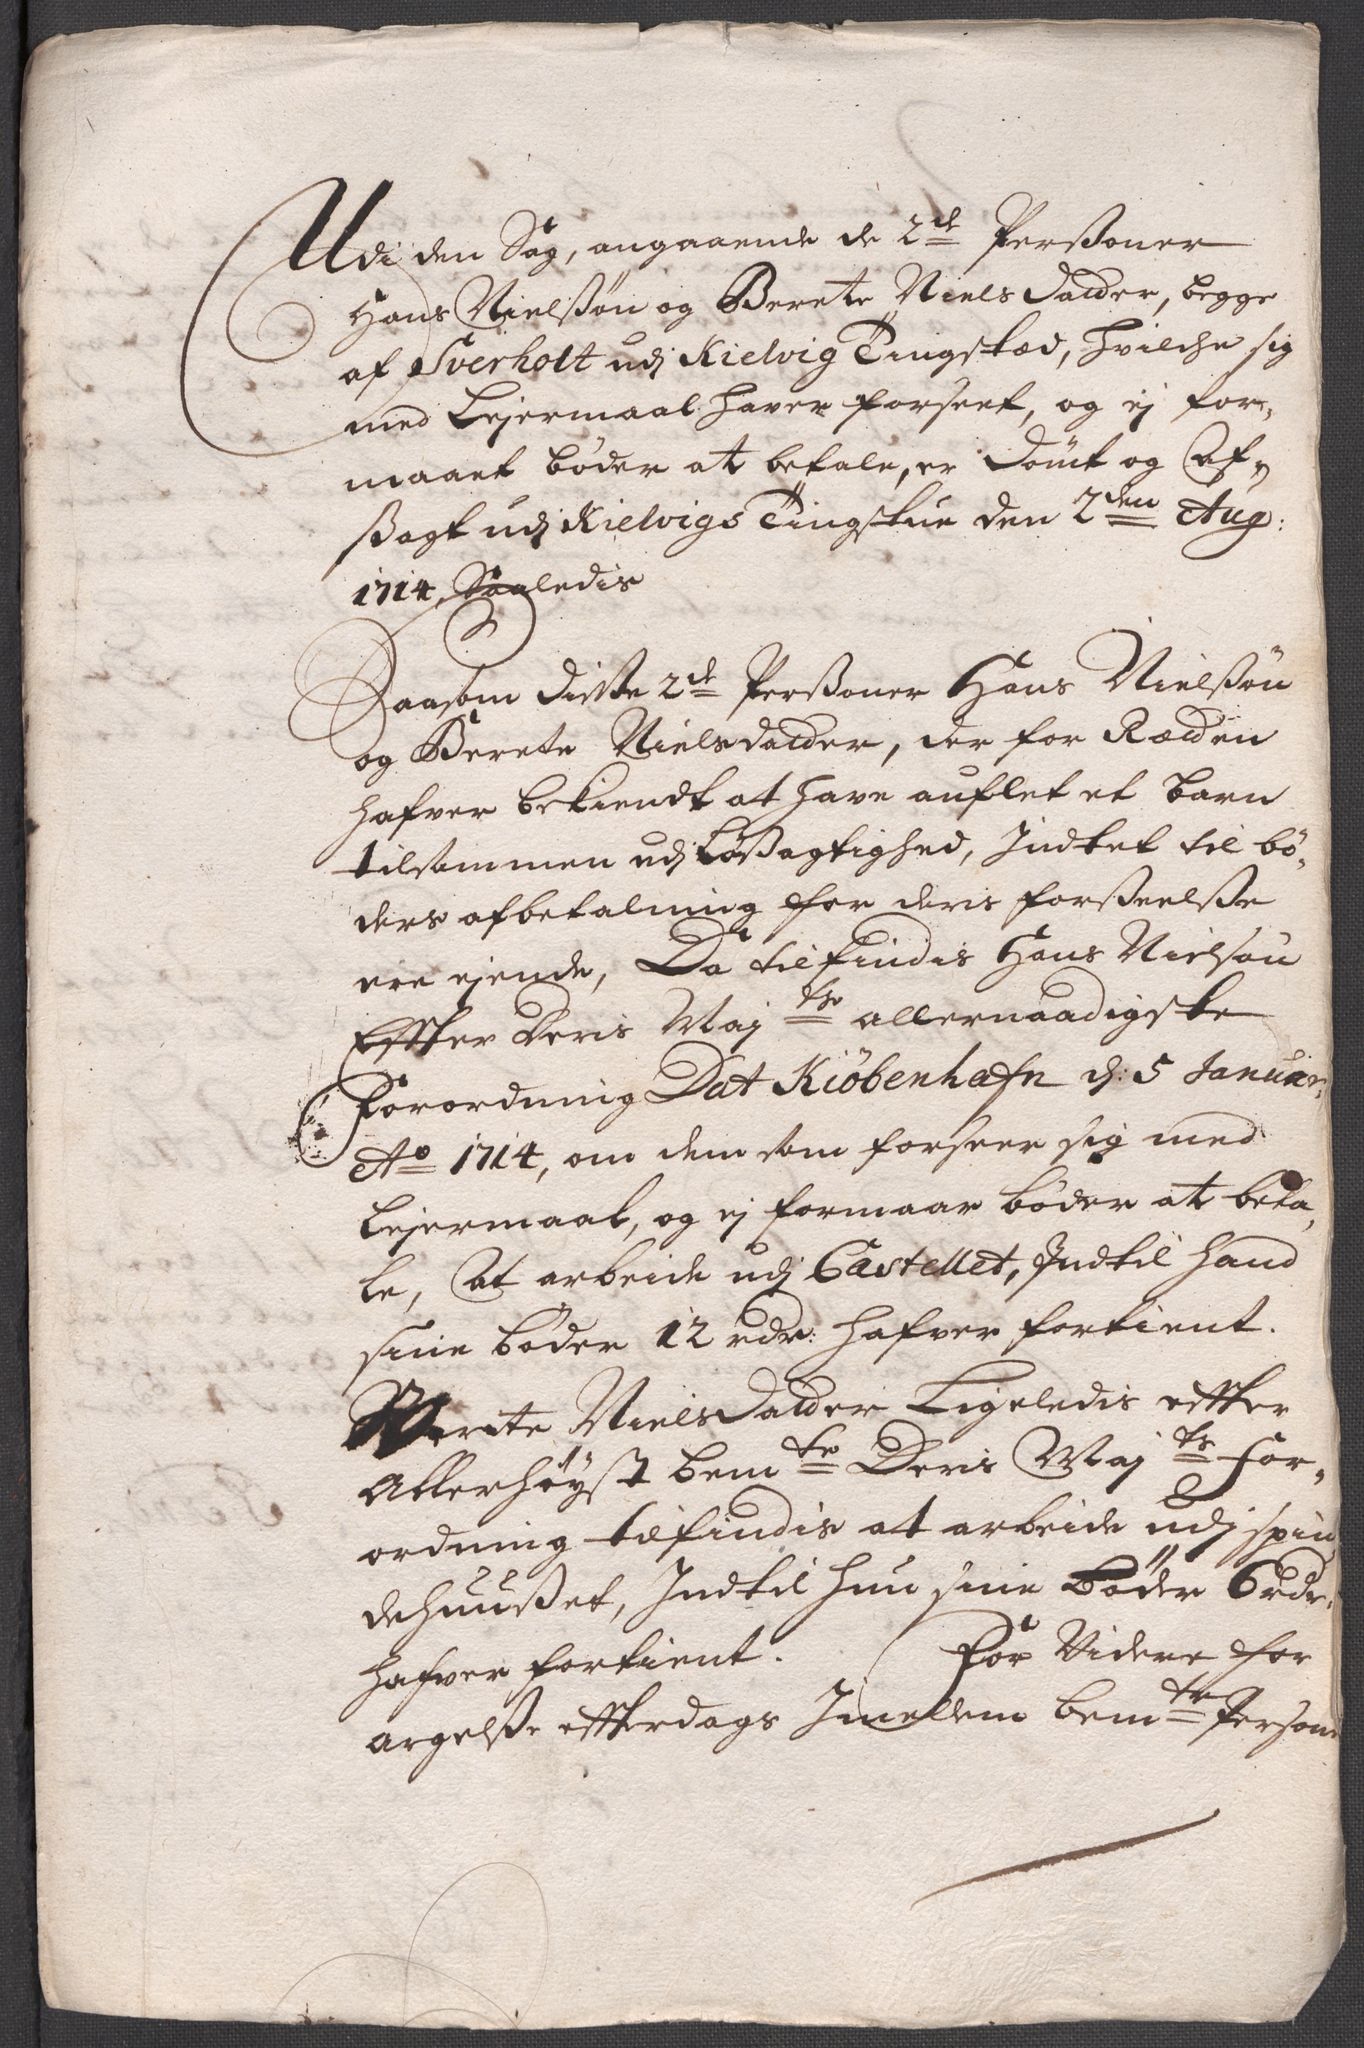 Udi den Sag, angaaende de 2de Persßoner
Hans Nielßøn og Berete Niels Datter, begge
af Sverholt udj Kielvig Tingsted, hvilche sig
med Lejermaal haver forseet, og ej for-
maaet bøder at betale, er Dømt og Af-
ßagt udj Kielvigs Tingstue den 2den Aug:
1714, Saaledis
Saasom disse 2de Perßoner Hans Nielßøn
og Berete Nielsdatter, der for Rætten
hafver bekiendt at have auflet et Barn
tilsammen udj Løßagtighed, Indtet til bø-
ders afbetalning for deris forßeelße
ere ejende, Da tilfindis Hans Nielsøn
Effter Deris Maj ts allernaadigste
Forordning Dat Kiöbenhafn d: 5 Januar:
Ao 1714, om dem som forseer sig med
Lejermaal, og ej formaar bøder at beta-
le, At arbeide udj Castellet, Indtil hand
sine bøder 12 rdr: hafver fortient.
Berete Nielsdatter Ligeledis effter
Allerhøyst bem te Deris Maj ts For-
ordning tilfindis at arbeide udj spin-
dehuußet, Indtil hun sine Bøder 6 rdr:
hafver fortient. For Videre for
argelße effterdags Imellem bem te Persone